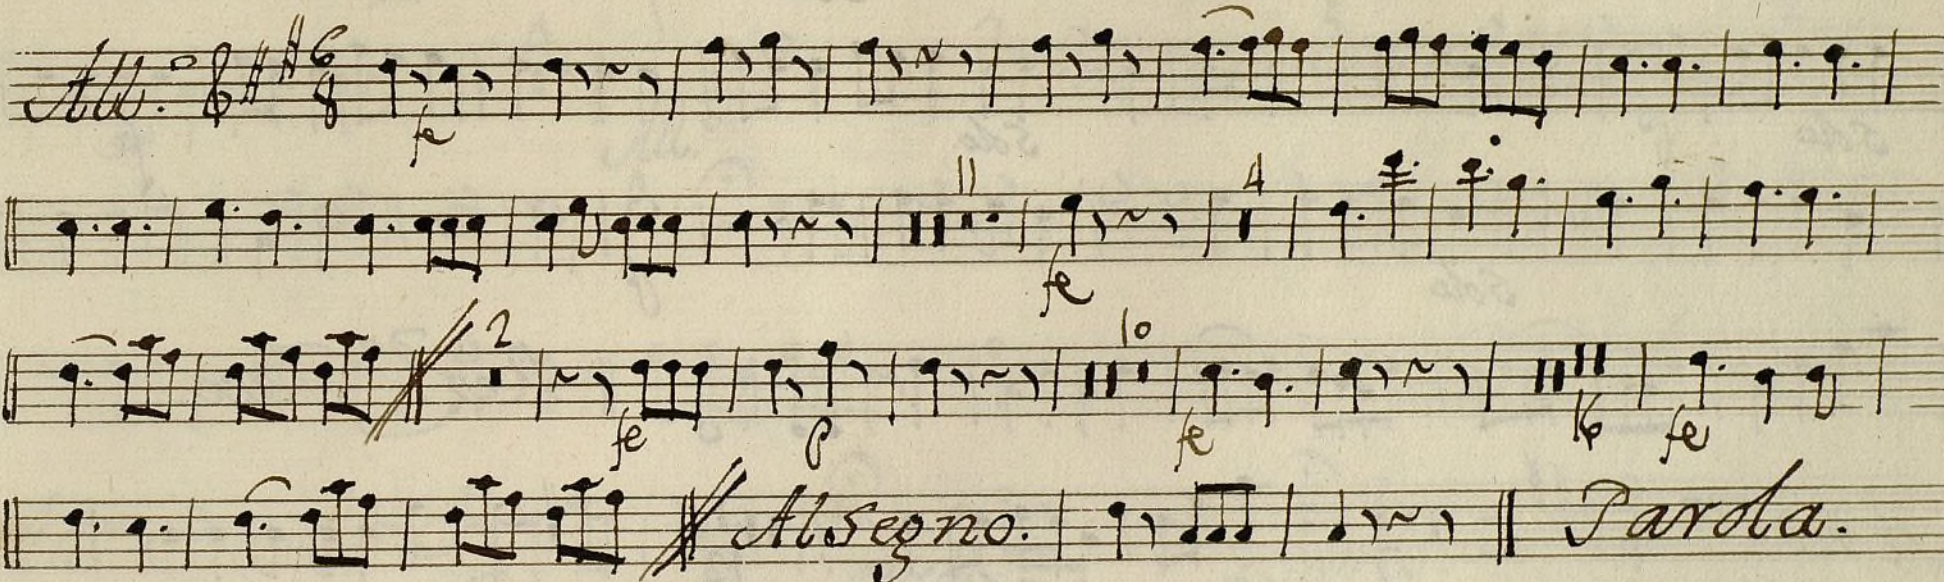 All.º 6 8
fe
11 4
fe
2 10
fe p fe 16 fe
Al segno. Parola.